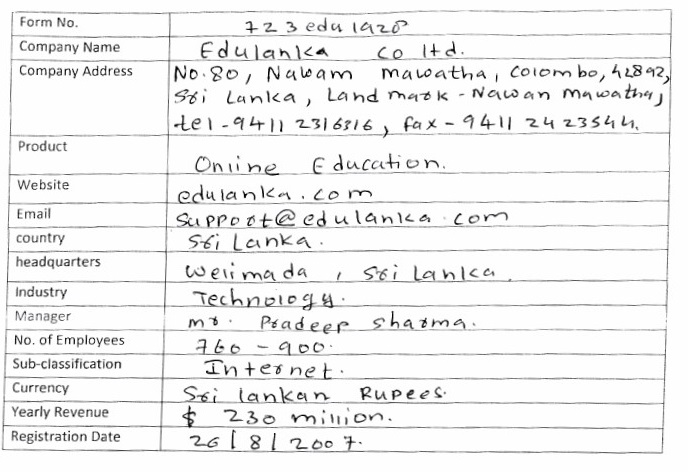 Form No. 723edu1928
Company Name Edulanka co ltd.
Company Address No.80, Nawam mawatha, Colombo, 42892,
Sri Lanka, Land mark - Nawan mawatha,
tel - 9411 2316316, fax - 9411 2423544.
Product Online Education.
Website edulanka.com
Email support@edulanka.com
country Sri Lanka.
headquarters Welimada, Sri Lanka.
Industry Technology.
Manager mr. Pradeep sharma.
No. of Employees 760 - 900.
Sub-classification Internet.
Currency Sri lankan Rupees.
Yearly Revenue $ 230 million.
Registration Date 26/8/2007.